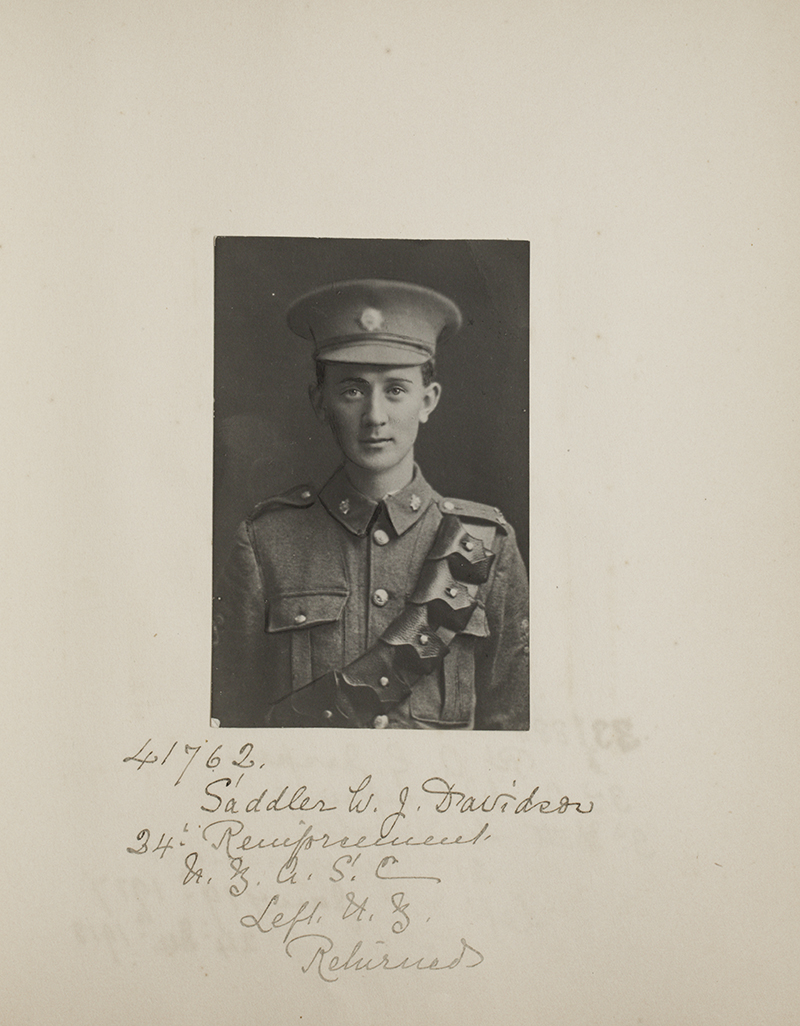 41762.
Saddler W. J. Davidson
24th Reinforcement
N. Z. A. S. C
Left. N. Z.
Returned